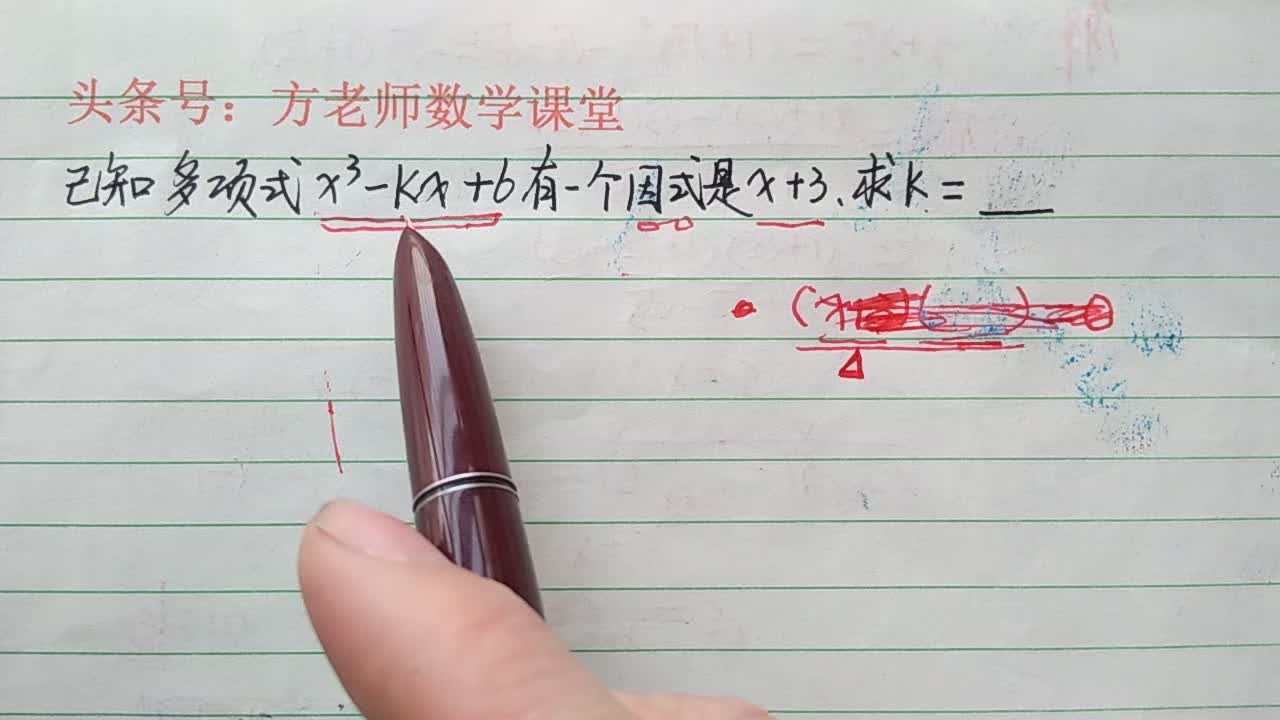 头条号：方老师数学课堂
已知多项式x³-kx+6有一个因式是x+3.求k=___